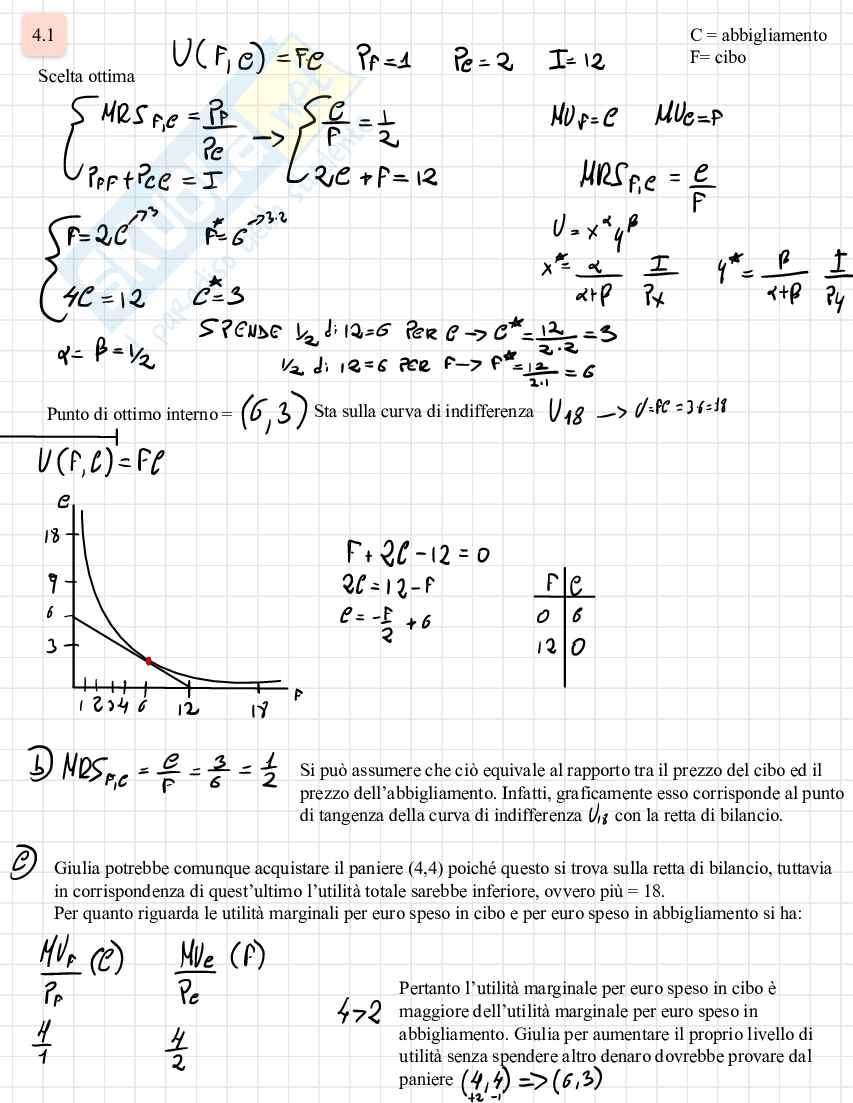 4.1
U(F,C) = FC   PF=1   Pc=2   I=12
C = abbigliamento
F= cibo
Scelta ottima
MRS F,C = PF/PC → C/F = 1/2
MUF=C   MUC=F
PFF + PCC = I   2C + F = 12
MRS F,C = C/F
F=2C →3   F*=6 →3·2
U = x^α y^β
x* = α/(α+β) I/Px   y* = β/(α+β) I/Py
4C = 12   C*=3
SPENDE 1/2 di 12=6 PER C → C*=12/2·2=3
α = β = 1/2
1/2 di 12=6 PER F → F*=12/2·1=6
Punto di ottimo interno = (6,3) Sta sulla curva di indifferenza U18 → U=FC=3·6=18
U(F,C) = FC
C
18
9
6
3
1 2 3 4 6 12 18 F
F + 2C - 12 = 0
2C = 12 - F
C = -F/2 + 6
F C
0 6
12 0
b) MRS F,C = C/F = 3/6 = 1/2
Si può assumere che ciò equivale al rapporto tra il prezzo del cibo ed il
prezzo dell'abbigliamento. Infatti, graficamente esso corrisponde al punto
di tangenza della curva di indifferenza U18 con la retta di bilancio.
C)
Giulia potrebbe comunque acquistare il paniere (4,4) poiché questo si trova sulla retta di bilancio, tuttavia
in corrispondenza di quest'ultimo l'utilità totale sarebbe inferiore, ovvero più = 18.
Per quanto riguarda le utilità marginali per euro speso in cibo e per euro speso in abbigliamento si ha:
MUF/PF (C)   MUC/PC (F)
4/1   4/2
4>2
Pertanto l'utilità marginale per euro speso in cibo è
maggiore dell'utilità marginale per euro speso in
abbigliamento. Giulia per aumentare il proprio livello di
utilità senza spendere altro denaro dovrebbe provare dal
paniere (4,4) => (6,3)
+2 -1
skuola.net
il paradiso dello studente